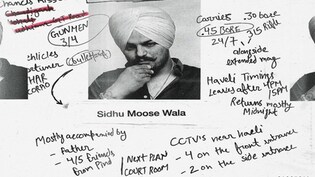 GUNMEN
3/4
(bulletproof)
THAR
Carries .30 bore
.45 BORE
315 Rifle
24/7
alongside
extended mag
Haveli Timings
Leaves after 4PM
/5AM
Returns mostly
Midnight
Sidhu Moose Wala
Mostly accompanied by
- Father
- 4/5 friends
from Pind
NEXT PLAN
/COURT ROOM
CCTV's near haveli
- 4 on the front entrance
- 2 on the side entrance